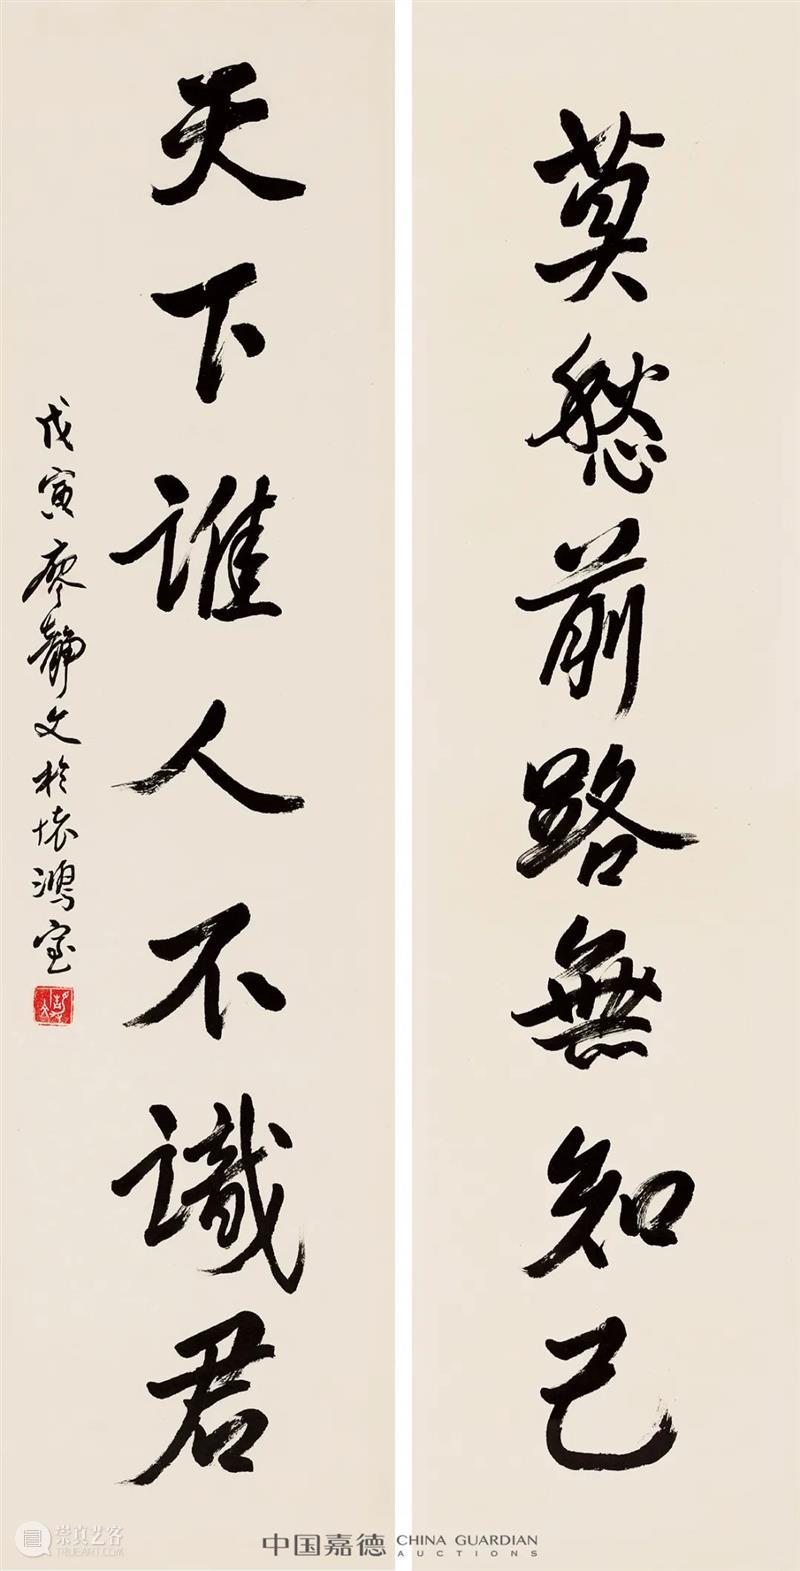 莫愁前路無知己
天下誰人不識君
戊寅廖靜文於懷鴻室
中国嘉德 CHINA GUARDIAN
AUCTIONS
崇真艺客
TRUEART.COM